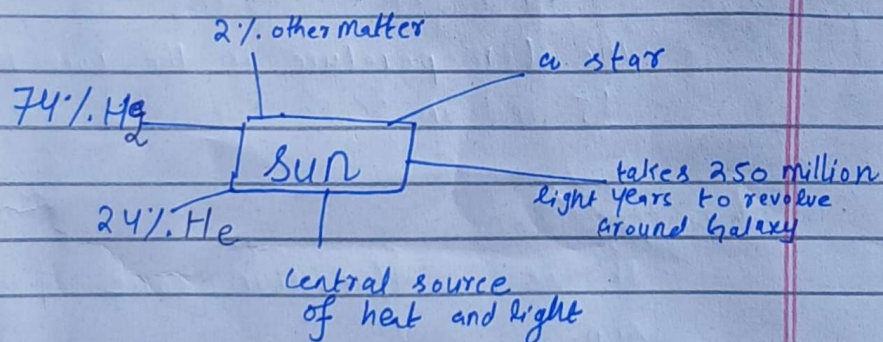 2%. other matter
a star
74%. H2
sun
takes 250 million
light years to revolve
around Galaxy
24%. He
Central source
of heat and light